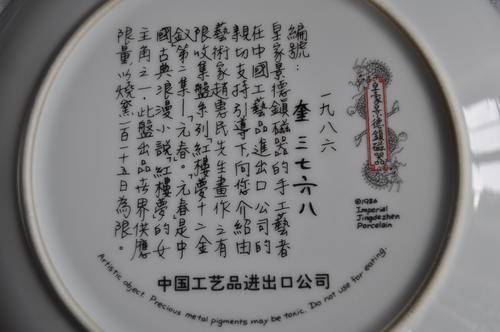 皇家景德鎮磁器
©1986
Imperial
Jingdezhen
Porcelain
一九八六
編號: 奎 三七六八
皇家景德鎮磁器的手工藝者
在中國工藝品進出口公司的
親切支持引導下,向您介紹由
藝術家趙惠民先生畫作之有
限收集盤系列「紅樓夢十二金
釵」第二集—「元春」。「元春」是中
國古典浪漫小說「紅樓夢」的女
主角之一,此盤出品世界供應
限量以燒窯一百一十五日為限。
中国工艺品进出口公司
Artistic object. Precious metal pigments may be toxic. Do not use for eating.